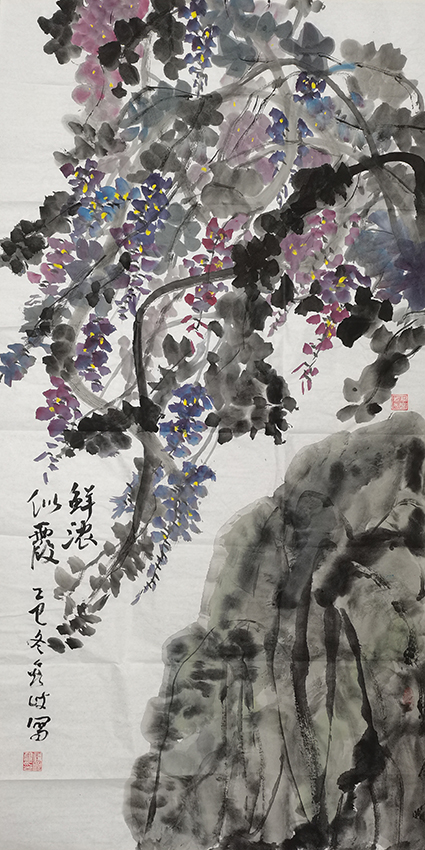 鲜浓
似霞
乙巳冬
写